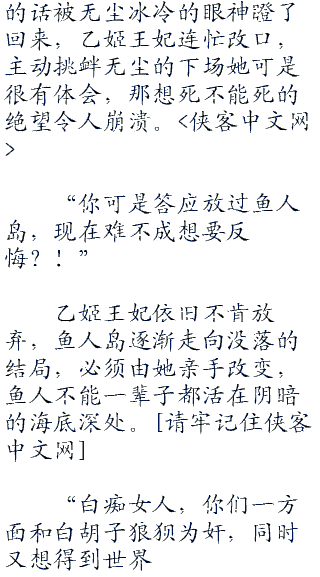 的话被无尘冰冷的眼神瞪了
回来，乙姬王妃连忙改口，
主动挑衅无尘的下场她可是
很有体会，那想死不能死的
绝望令人崩溃。<侠客中文网
>
“你可是答应放过鱼人
岛，现在难不成想要反
悔？！”
乙姬王妃依旧不肯放
弃，鱼人岛逐渐走向没落的
结局，必须由她亲手改变，
鱼人不能一辈子都活在阴暗
的海底深处。[请牢记住侠客
中文网]
“白痴女人，你们一方
面和白胡子狼狈为奸，同时
又想得到世界